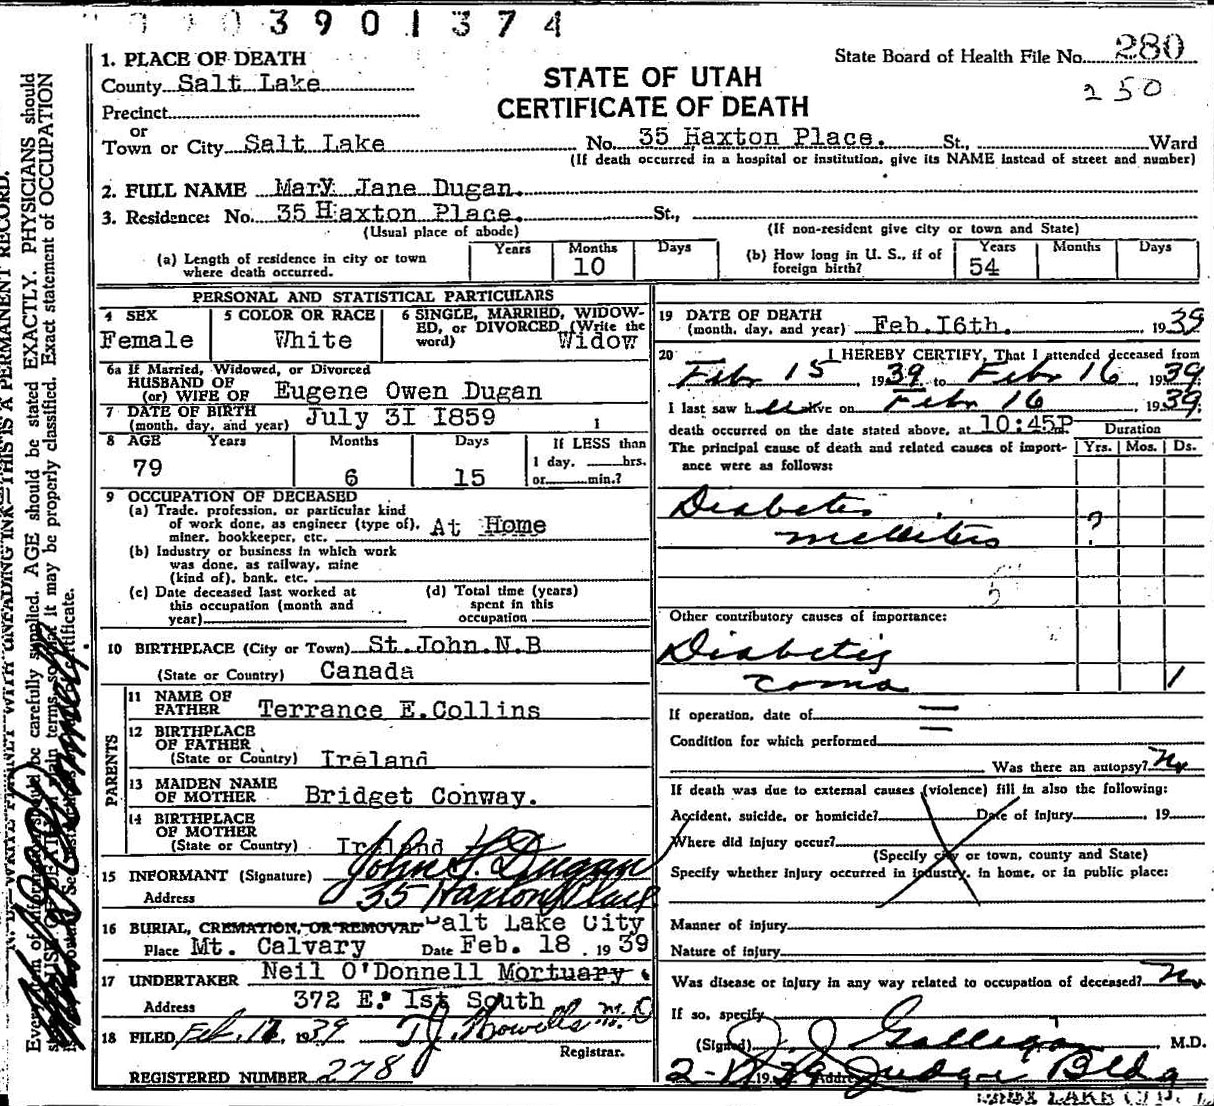 3901374
1. PLACE OF DEATH
County Salt Lake
Precinct
or
Town or City Salt Lake
STATE OF UTAH
CERTIFICATE OF DEATH
State Board of Health File No. 280
250
No. 35 Haxton Place. St., Ward
(If death occurred in a hospital or institution, give its NAME instead of street and number)
2. FULL NAME Mary Jane Dugan.
3. Residence: No. 35 Haxton Place. St.,
(Usual place of abode)
(If non-resident give city or town and State)
(a) Length of residence in city or town where death occurred. Years Months 10 Days
(b) How long in U. S., if of foreign birth? Years 54 Months Days
PERSONAL AND STATISTICAL PARTICULARS
4 SEX
Female
5 COLOR OR RACE
White
6 SINGLE, MARRIED, WIDOWED, or DIVORCED (Write the word) Widow
6a If Married, Widowed, or Divorced
HUSBAND OF
(or) WIFE OF Eugene Owen Dugan
7 DATE OF BIRTH
(month, day, and year) July 3I I859
8 AGE Years Months Days If LESS than
79 6 15
1 day, hrs.
or min.?
9 OCCUPATION OF DECEASED
(a) Trade, profession, or particular kind
of work done, as engineer (type of),
miner, bookkeeper, etc. At Home
(b) Industry or business in which work
was done, as railway, mine
(kind of), bank, etc.
(c) Date deceased last worked at
this occupation (month and
year)
(d) Total time (years)
spent in this
occupation
10 BIRTHPLACE (City or Town) St.John.N.B
(State or Country) Canada
PARENTS
11 NAME OF
FATHER Terrance E.Collins
12 BIRTHPLACE
OF FATHER
(State or Country) Ireland
13 MAIDEN NAME
OF MOTHER Bridget Conway.
14 BIRTHPLACE
OF MOTHER
(State or Country) Ireland
15 INFORMANT (Signature) John F. Dugan
Address 35 Haxton Place
16 BURIAL, CREMATION, OR REMOVAL Salt Lake City
Place Mt. Calvary Date Feb. 18 . 19 39
17 UNDERTAKER Neil O'Donnell Mortuary
Address 372 E. Ist South
18 FILED Feb. 17, 1939 T J Howells M.D
Registrar.
REGISTERED NUMBER 278
19 DATE OF DEATH
(month, day, and year) Feb.I6th. , 1939
20 I HEREBY CERTIFY, That I attended deceased from
Febr 15 1939 to Febr 16, 1939
I last saw her alive on Febr 16, 1939.
death occurred on the date stated above, at 10:45P
Duration
The principal cause of death and related causes of importance were as follows:
Yrs. Mos. Ds.
Diabetes
mellitus ?
5
Other contributory causes of importance:
Diabetis
coma 1
If operation, date of
Condition for which performed
Was there an autopsy? No
If death was due to external causes (violence) fill in also the following:
Accident, suicide, or homicide? Date of injury , 19
Where did injury occur?
(Specify city or town, county and State)
Specify whether injury occurred in industry, in home, or in public place:
Manner of injury
Nature of injury
Was disease or injury in any way related to occupation of deceased? No
If so, specify
(Signed) J. J. Galligan , M.D.
2-17 1939 Address Judge Bldg
SALT LAKE CITY,